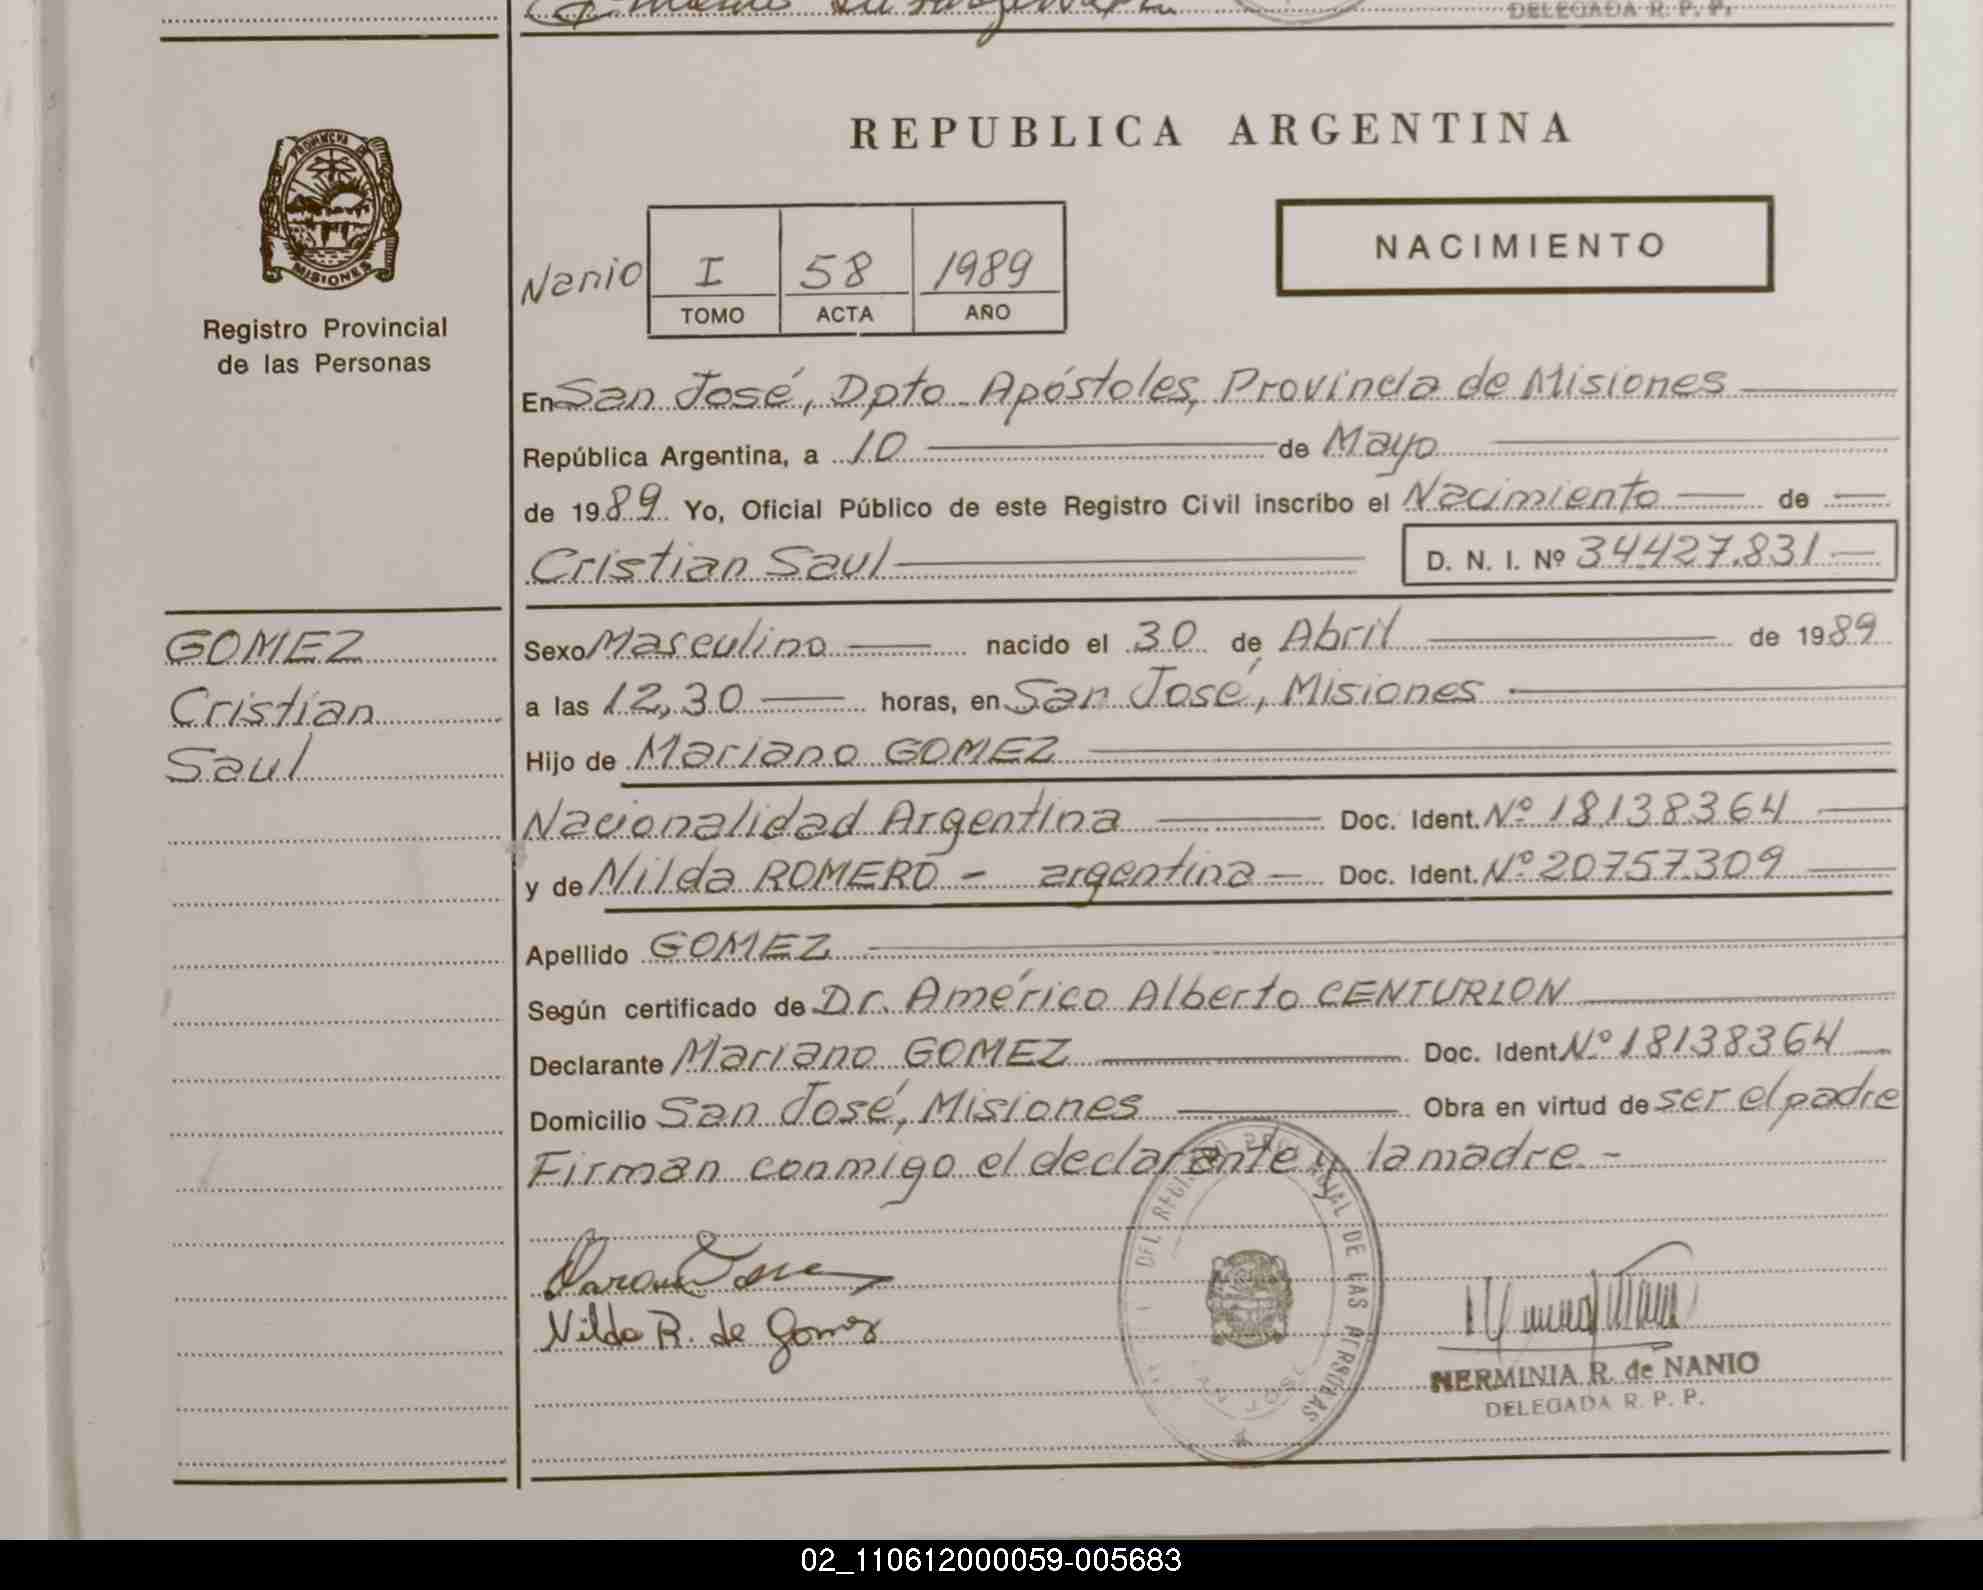 DELEGADA R. P. P.
PROVINCIA DE
MISIONES
Registro Provincial
de las Personas
REPUBLICA ARGENTINA
NACIMIENTO
Nanio I 58 1989
TOMO ACTA AÑO
En San José, Dpto. Apóstoles, Provincia de Misiones
República Argentina, a 10 de Mayo
de 1989 Yo, Oficial Público de este Registro Civil inscribo el Nacimiento de
Cristian Saul D. N. I. Nº 34.427.831
GOMEZ
Cristian
Saul
Sexo Masculino nacido el 30 de Abril de 1989
a las 12,30 horas, en San José, Misiones
Hijo de Mariano GOMEZ
Nacionalidad Argentina Doc. Ident. Nº 18138364
y de Nilda ROMERO - argentina - Doc. Ident. Nº 20757309
Apellido GOMEZ
Según certificado de Dr. Américo Alberto CENTURION
Declarante Mariano GOMEZ Doc. Ident. Nº 18138364
Domicilio San José, Misiones Obra en virtud de ser el padre
Firman conmigo el declarante y la madre.-
Nilda R. de Gomez
DEL REGISTRO PROVINCIAL DE LAS PERSONAS
SAN JOSE
HERMINIA R. de NANIO
DELEGADA R. P. P.
02_110612000059-005683